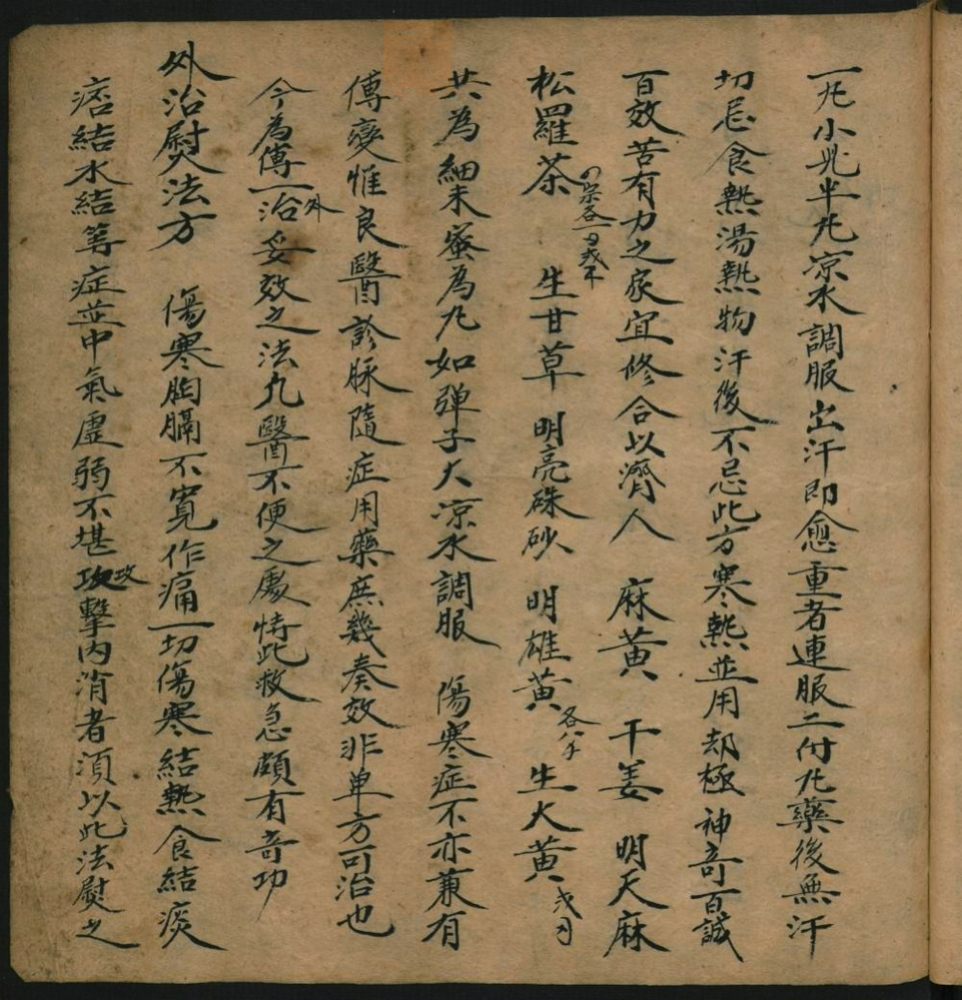 一丸小兒半丸凉水調服出汗即愈重者連服二付丸藥後無汗
切忌食熱湯熱物汗後不忌此方寒熱並用却極神奇百試
百效苦有力之家宜修合以濟人　麻黄　干姜　明天麻
松羅茶　生甘草　明亮硃砂　明雄黄各八千　生大黄
共為細末蜜為丸如彈子大凉水調服　傷寒症不亦兼有
傳變惟良醫診脉隨症用藥庶幾奏效非单方可治也
今為傳一外治妥效之法凡醫不便之處恃此救急頗有奇功
外治熨法方　傷寒胸膈不寬作痛一切傷寒結熱食結痰
痞結水結等症並中氣虛弱不堪攻擊内消者須以此法熨之